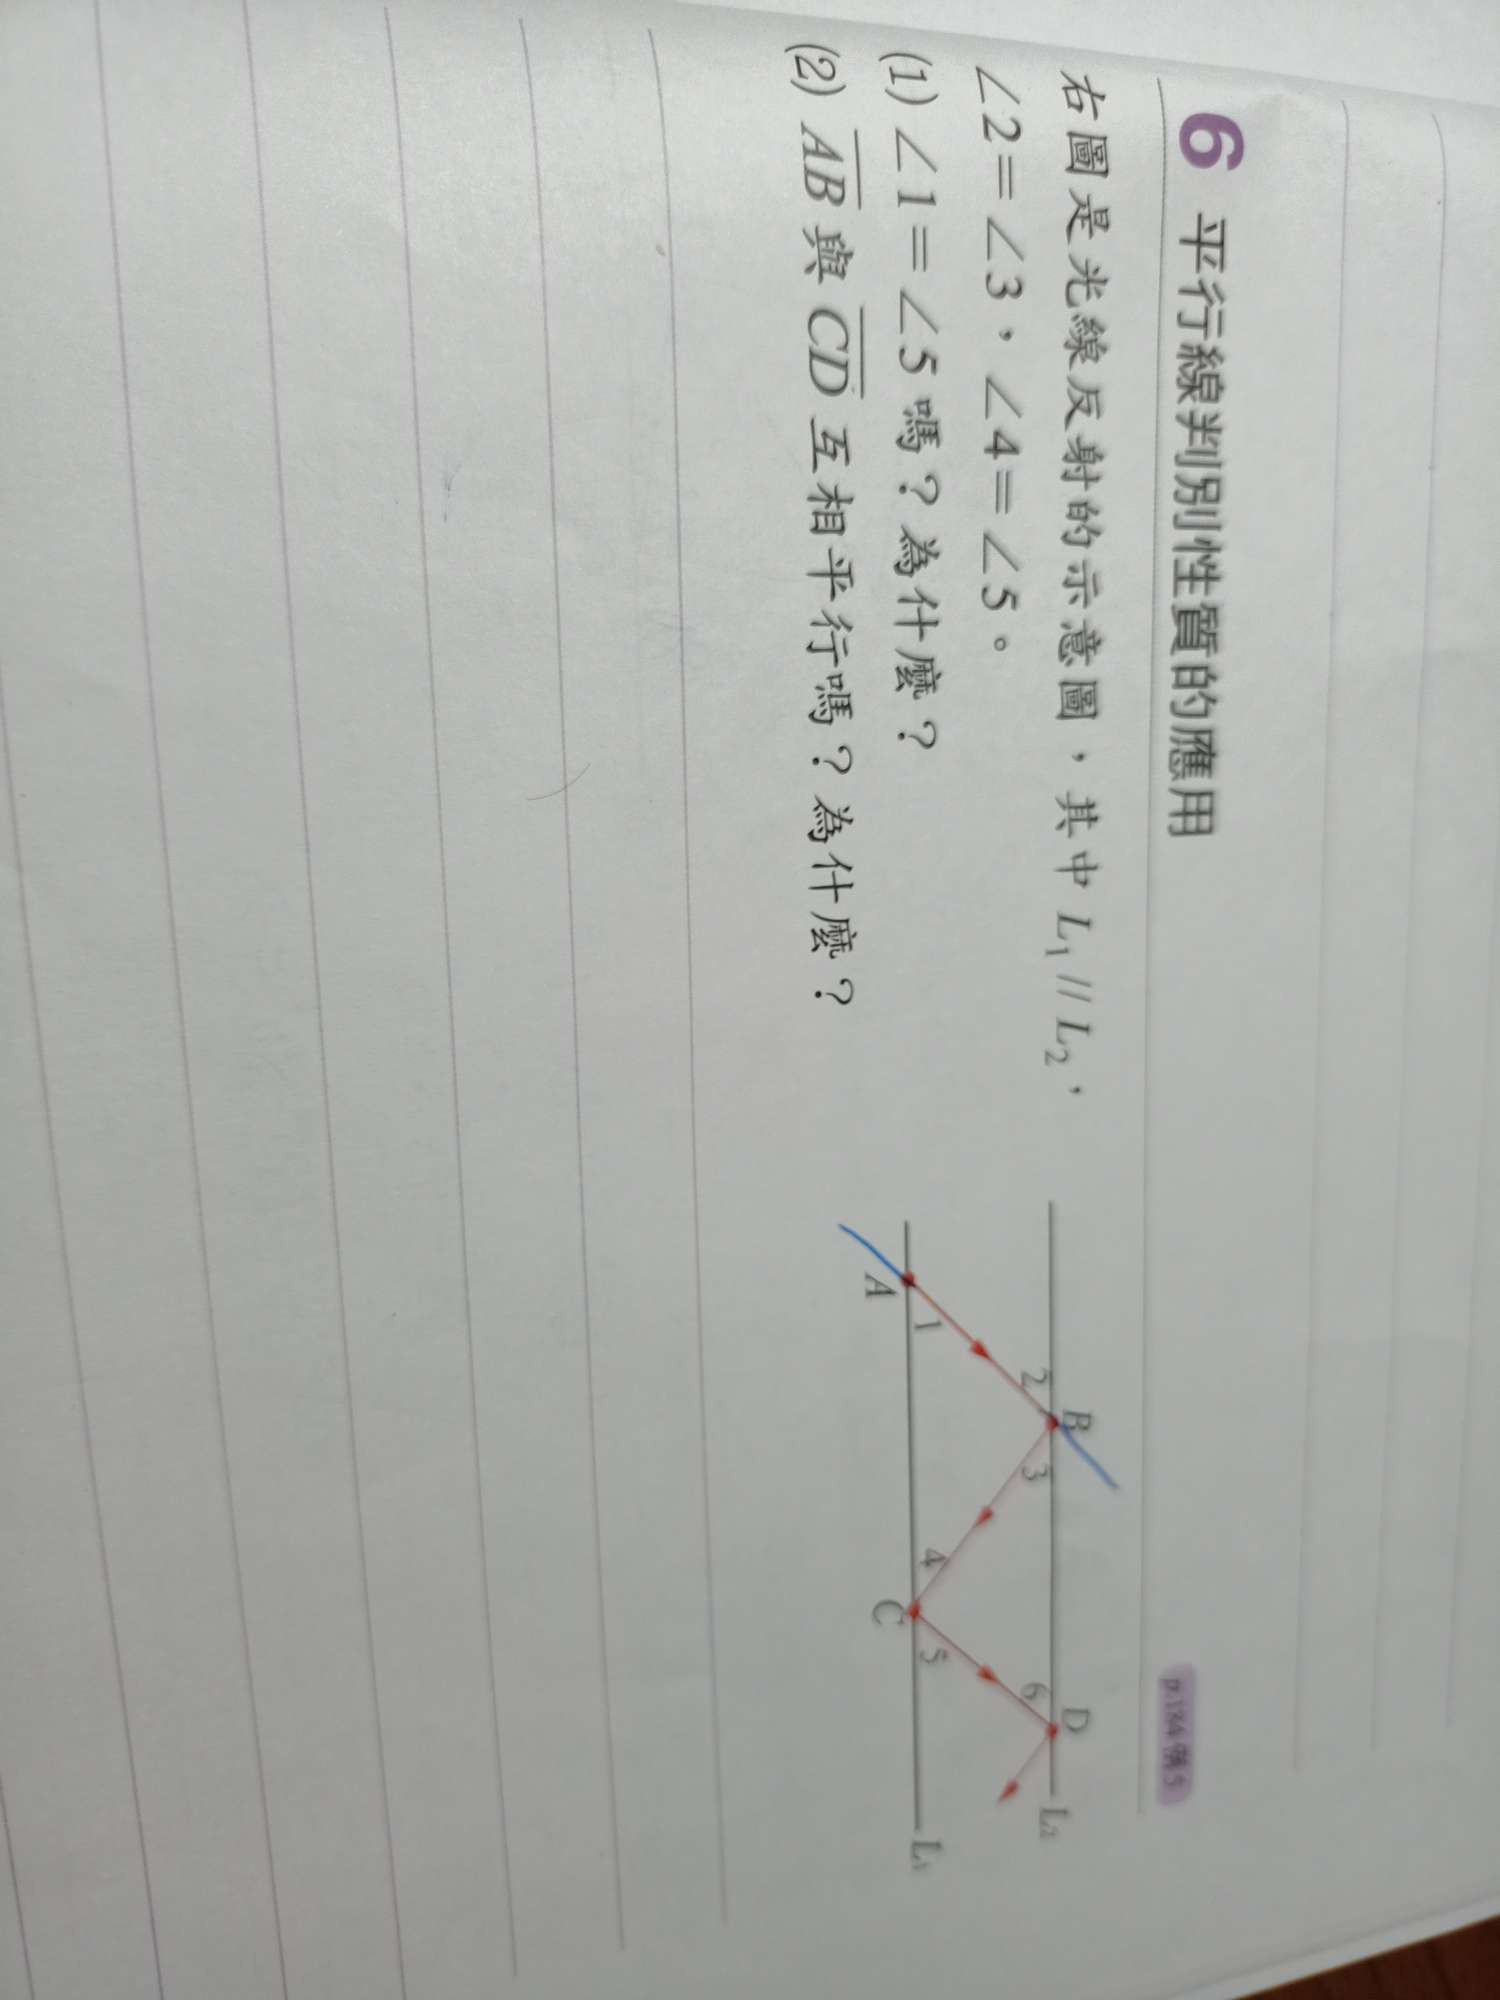 6 平行線判別性質的應用
p.184 例5
右圖是光線反射的示意圖，其中 L₁ // L₂，
∠2＝∠3，∠4＝∠5。
(1) ∠1＝∠5 嗎？為什麼？
(2) A̅B̅ 與 C̅D̅ 互相平行嗎？為什麼？
B D L₂
2 3 6
1 4 5
A C L₁